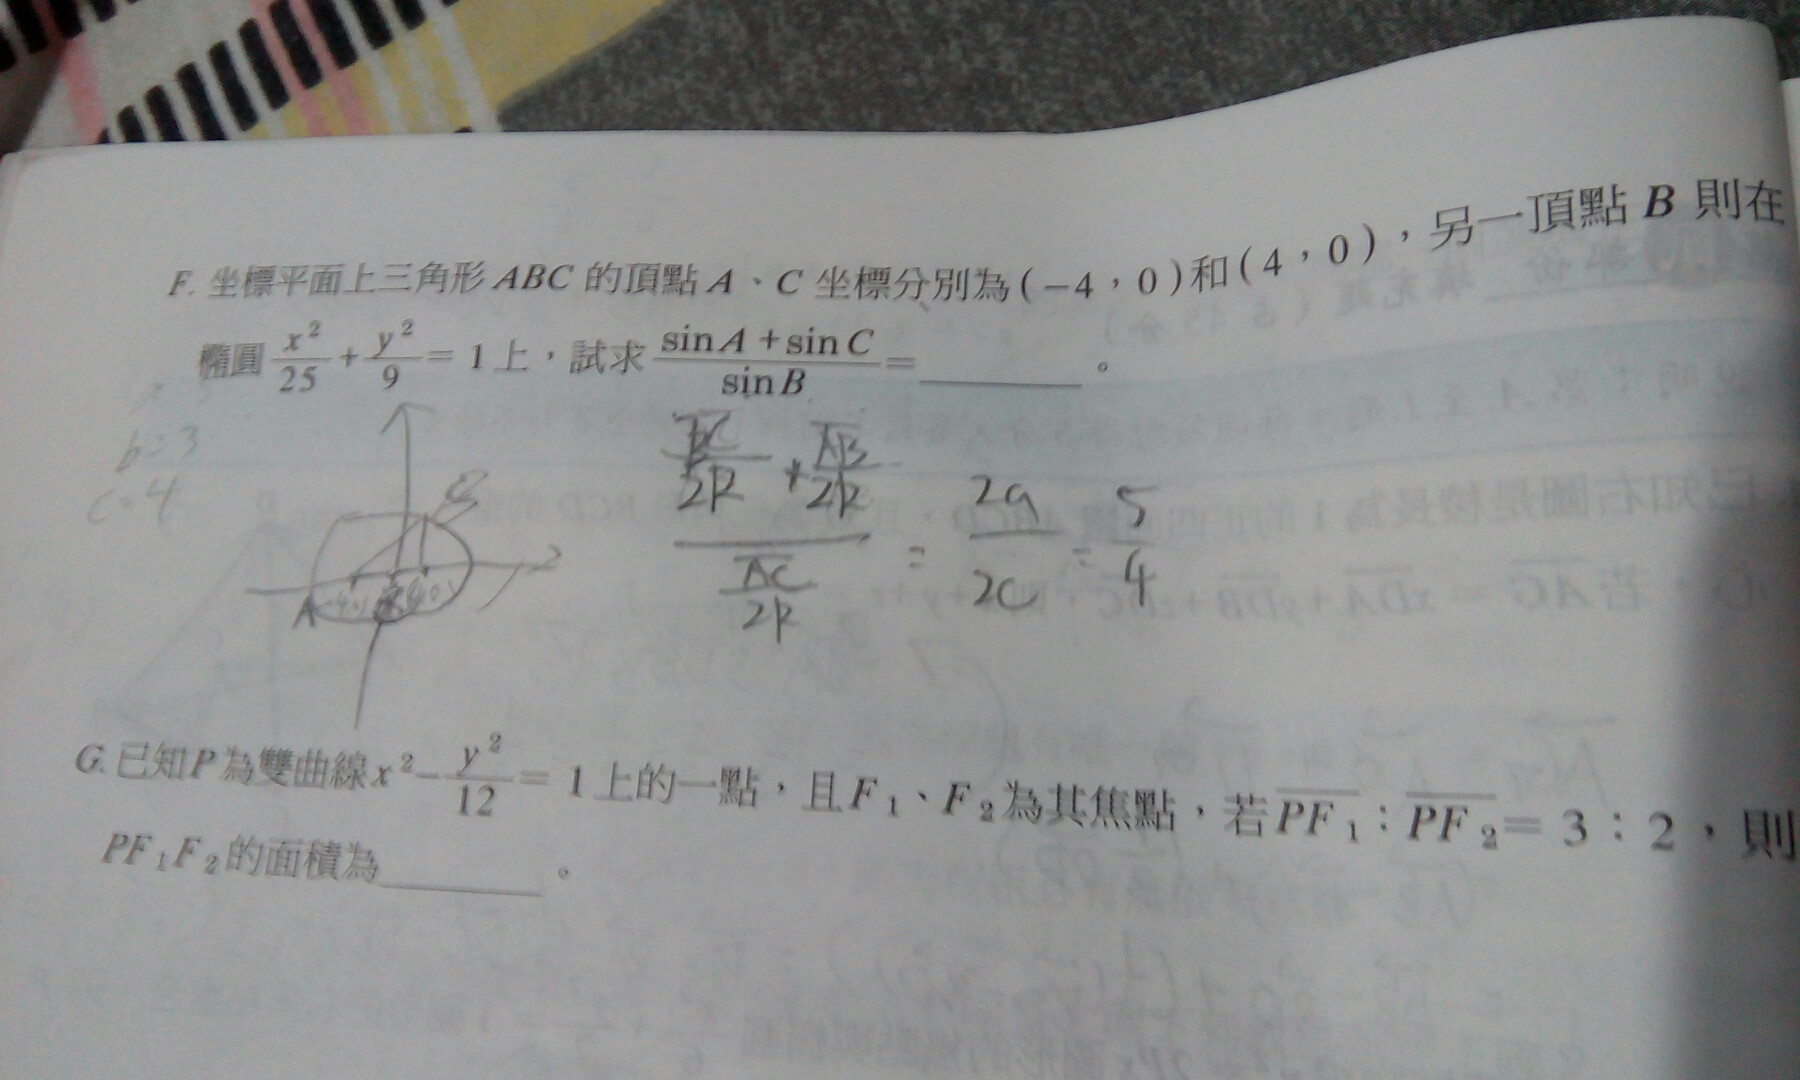 F. 坐標平面上三角形 ABC 的頂點 A、C 坐標分別為(-4,0)和(4,0),另一頂點 B 則在
橢圓 x²/25 + y²/9 = 1上,試求 (sinA+sinC)/sinB = ______。
b=3
c=4
B
A
(BC/2R + AB/2R)/(AC/2R) = 2a/2c = 5/4
G. 已知P為雙曲線x²-y²/12=1上的一點,且F₁、F₂為其焦點,若PF₁:PF₂=3:2,則
PF₁F₂的面積為______。